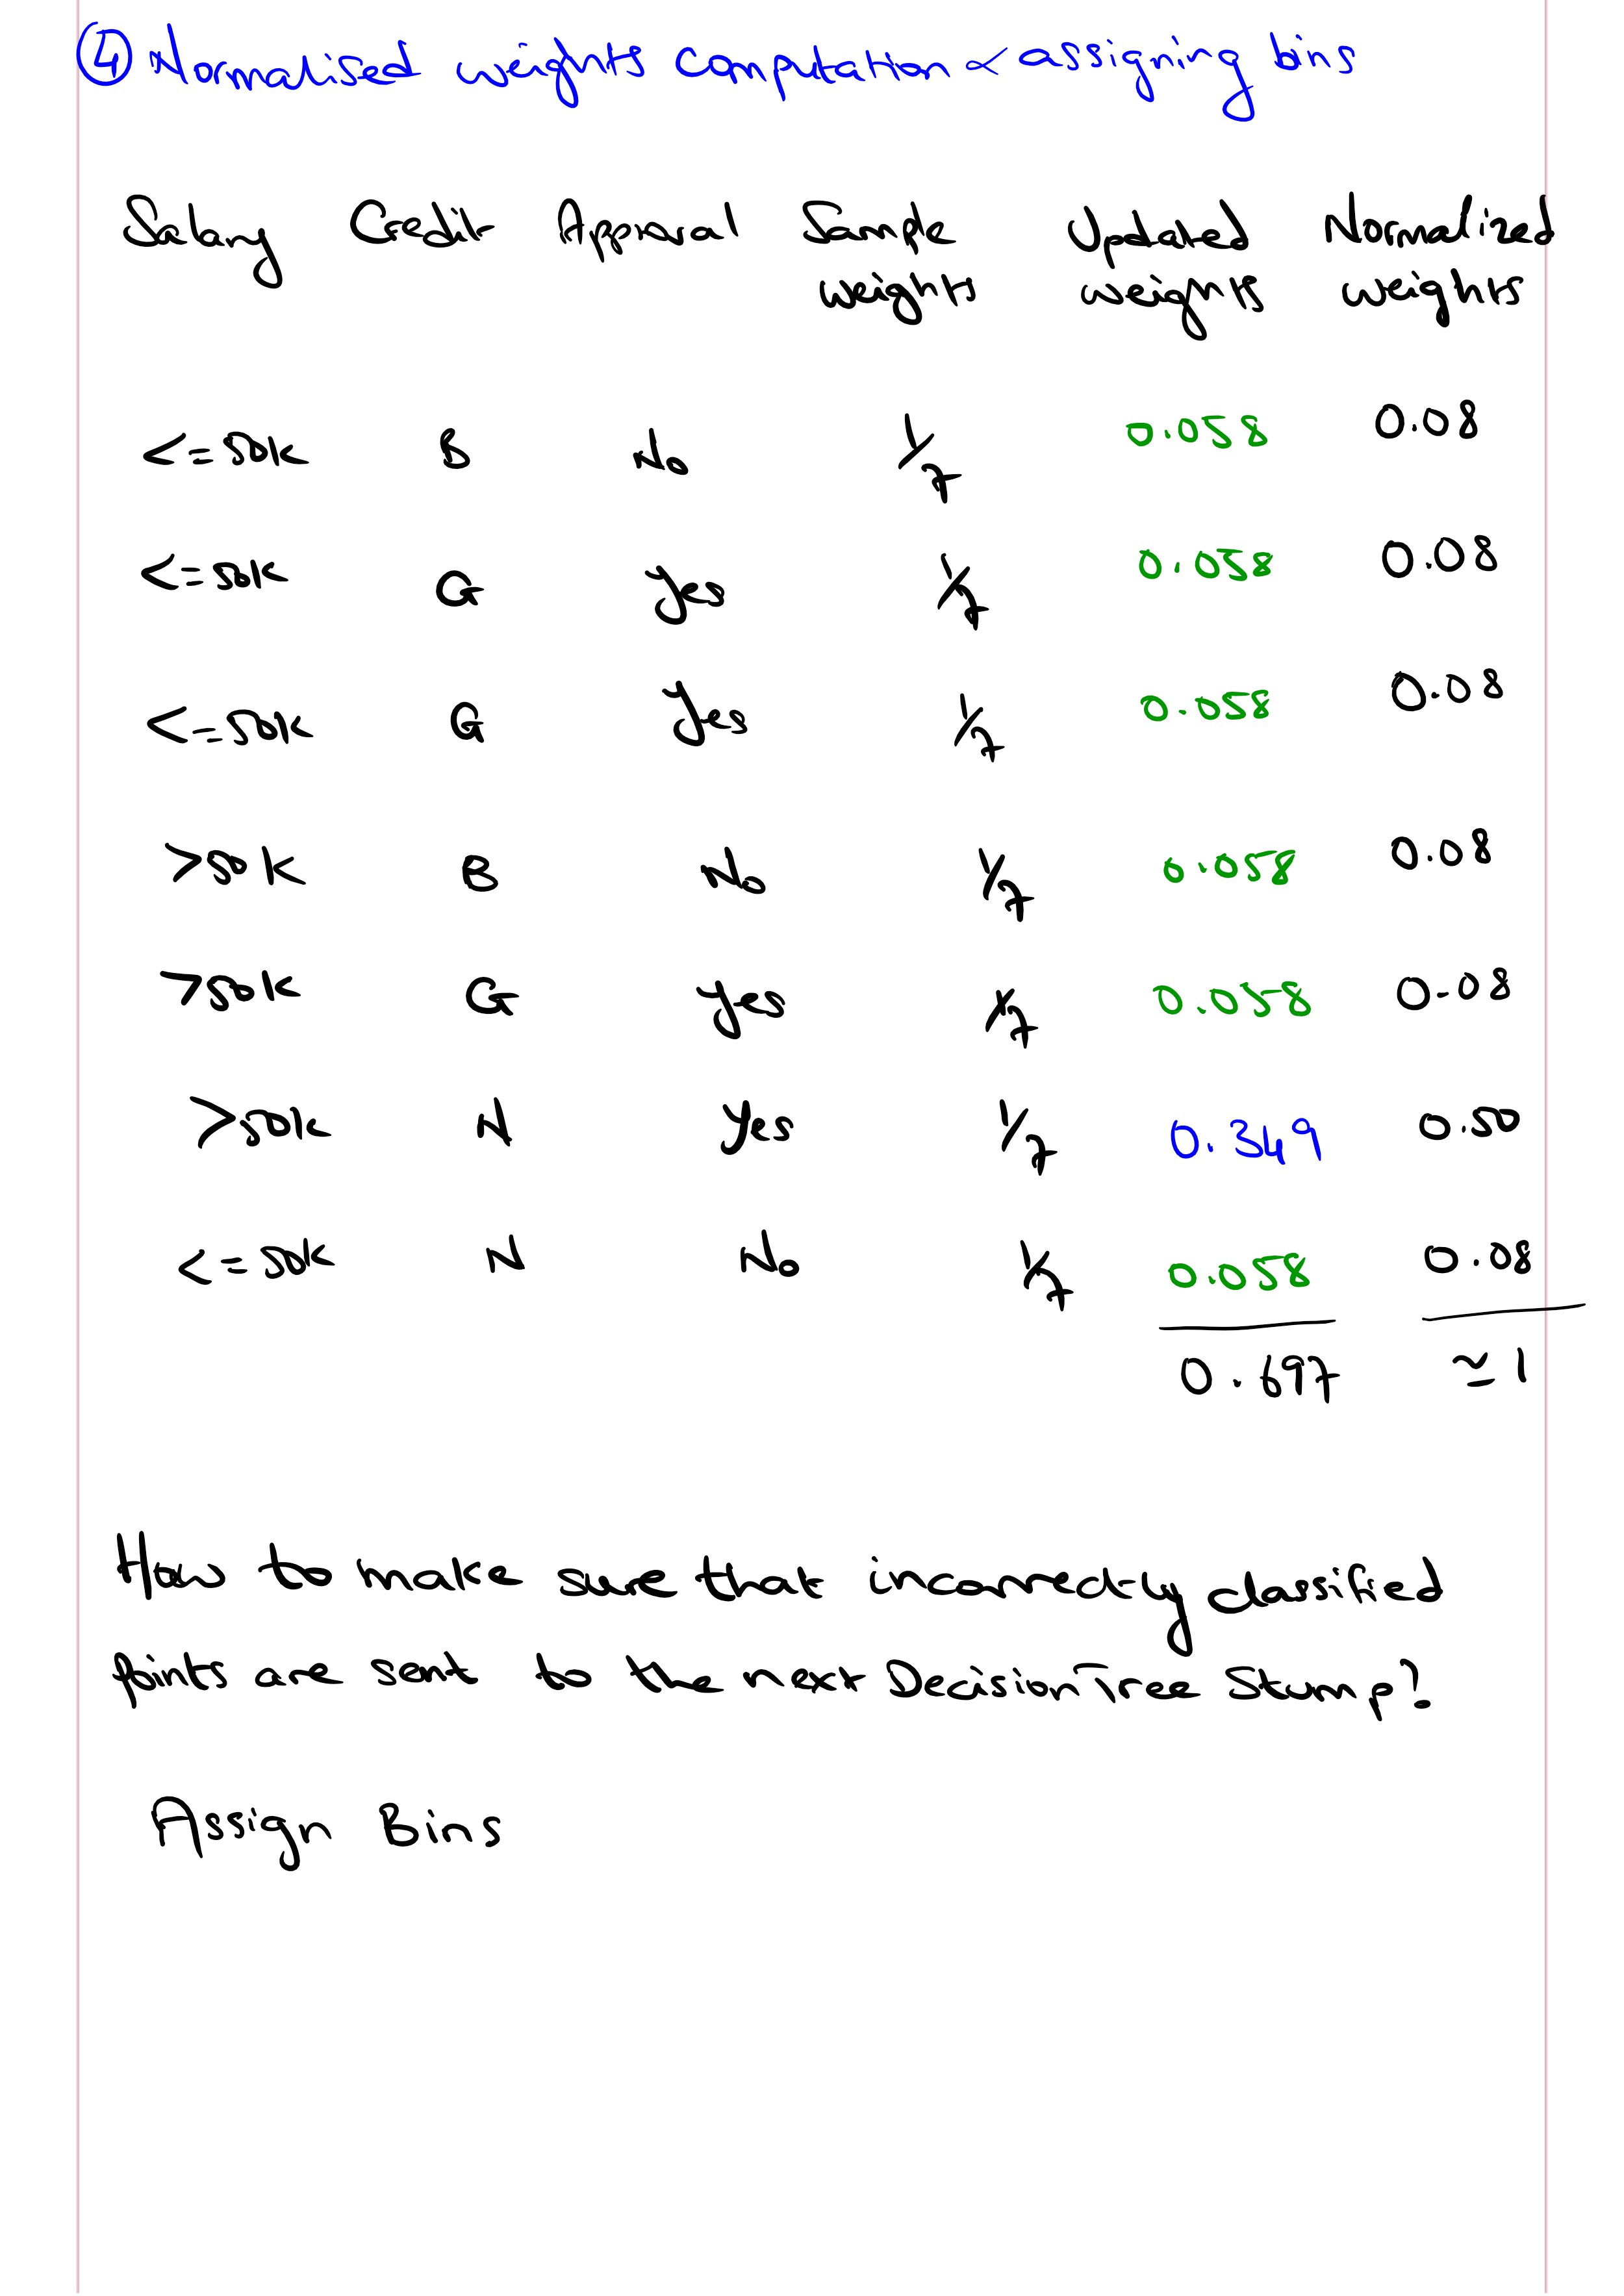 ④ Normalised weights computation & assigning bins
Salary Credit Approval Sample weights Updated weights Normalized weights
<=50k B No 1/7 0.058 0.08
<=50k G Yes 1/7 0.058 0.08
<=50k G Yes 1/7 0.058 0.08
>50k B No 1/7 0.058 0.08
>50k G Yes 1/7 0.058 0.08
>50k N Yes 1/7 0.349 0.50
<=50k N No 1/7 0.058 0.08
0.697 ≃1
How to make sure that incorrectly classified
points are sent to the next DecisionTree Stump?
Assign Bins